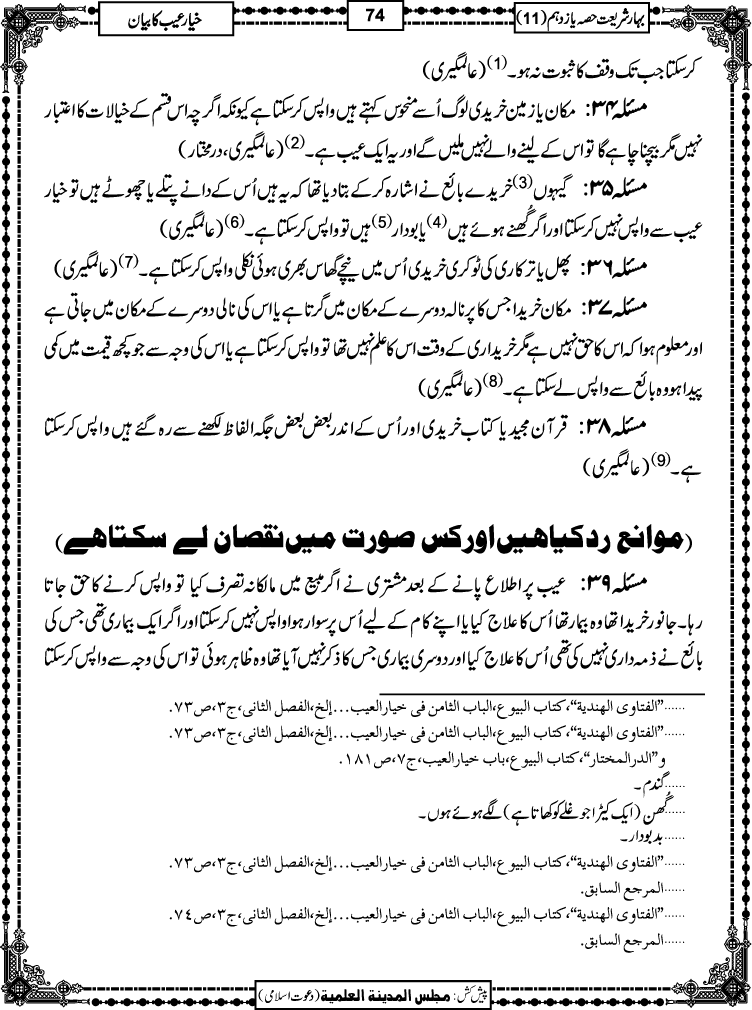 بہار شریعت حصہ یازدہم (11)
74
خیار عیب کا بیان
کرسکتا جب تک وقف کا ثبوت نہ ہو۔(1) (عالمگیری)
مسئلہ ۳۴: مکان یا زمین خریدی لوگ اُسے منحوس کہتے ہیں واپس کرسکتا ہے کیونکہ اگرچہ اس قسم کے خیالات کا اعتبار
نہیں مگر بیچنا چاہے گا تو اس کے لینے والے نہیں ملیں گے اور یہ ایک عیب ہے۔(2) (عالمگیری، درمختار)
مسئلہ ۳۵: گیہوں(3) خریدے بائع نے اشارہ کرکے بتادیا تھا کہ یہ ہیں اُس کے دانے پتلے یا چھوٹے ہیں تو خیار
عیب سے واپس نہیں کرسکتا اور اگر گُھنے ہوئے ہیں(4) یا بودار(5) ہیں تو واپس کرسکتا ہے۔(6) (عالمگیری)
مسئلہ ۳۶: پھل یا ترکاری کی ٹوکری خریدی اُس میں نیچے گھاس بھری ہوئی نکلی واپس کرسکتا ہے۔(7) (عالمگیری)
مسئلہ ۳۷: مکان خریدا جس کا پرنالہ دوسرے کے مکان میں گرتا ہے یا اس کی نالی دوسرے کے مکان میں جاتی ہے
اور معلوم ہوا کہ اس کا حق نہیں ہے مگر خریداری کے وقت اس کا علم نہیں تھا تو واپس کرسکتا ہے یا اس کی وجہ سے جو کچھ قیمت میں کمی
پیدا ہو وہ بائع سے واپس لے سکتا ہے۔(8) (عالمگیری)
مسئلہ ۳۸: قرآن مجید یا کتاب خریدی اور اُس کے اندر بعض بعض جگہ الفاظ لکھنے سے رہ گئے ہیں واپس کرسکتا
ہے۔(9) (عالمگیری)
(موانع رد کیا ہیں اور کس صورت میں نقصان لے سکتا ہے)
مسئلہ ۳۹: عیب پر اطلاع پانے کے بعد مشتری نے اگر مبیع میں مالکانہ تصرف کیا تو واپس کرنے کا حق جاتا
رہا۔ جانور خریدا تھا وہ بیمار تھا اُس کا علاج کیا یا اپنے کام کے لیے اُس پر سوار ہوا واپس نہیں کرسکتا اور اگر ایک بیماری تھی جس کی
بائع نے ذمہ داری نہیں کی تھی اُس کا علاج کیا اور دوسری بیماری جس کا ذکر نہیں آیا تھا وہ ظاہر ہوئی تو اس کی وجہ سے واپس کرسکتا
......"الفتاوى الهندية"، كتاب البيوع، الباب الثامن فی خيارالعيب...إلخ، الفصل الثانی، ج۳، ص۷۳.
......"الفتاوى الهندية"، كتاب البيوع، الباب الثامن فی خيارالعيب...إلخ، الفصل الثانی، ج۳، ص۷۳.
و"الدرالمختار"، كتاب البيوع، باب خيارالعيب، ج۷، ص۱۸۱.
......گندم۔
......گُھن (ایک کیڑا جو غلے کو کھاتا ہے) لگے ہوئے ہوں۔
......بدبودار۔
......"الفتاوى الهندية"، كتاب البيوع، الباب الثامن فی خيارالعيب...إلخ، الفصل الثانی، ج۳، ص۷۳.
......المرجع السابق.
......"الفتاوى الهندية"، كتاب البيوع، الباب الثامن فی خيارالعيب...إلخ، الفصل الثانی، ج۳، ص۷٤.
......المرجع السابق.
پیش کش: مجلس المدينة العلمية (دعوت اسلامی)